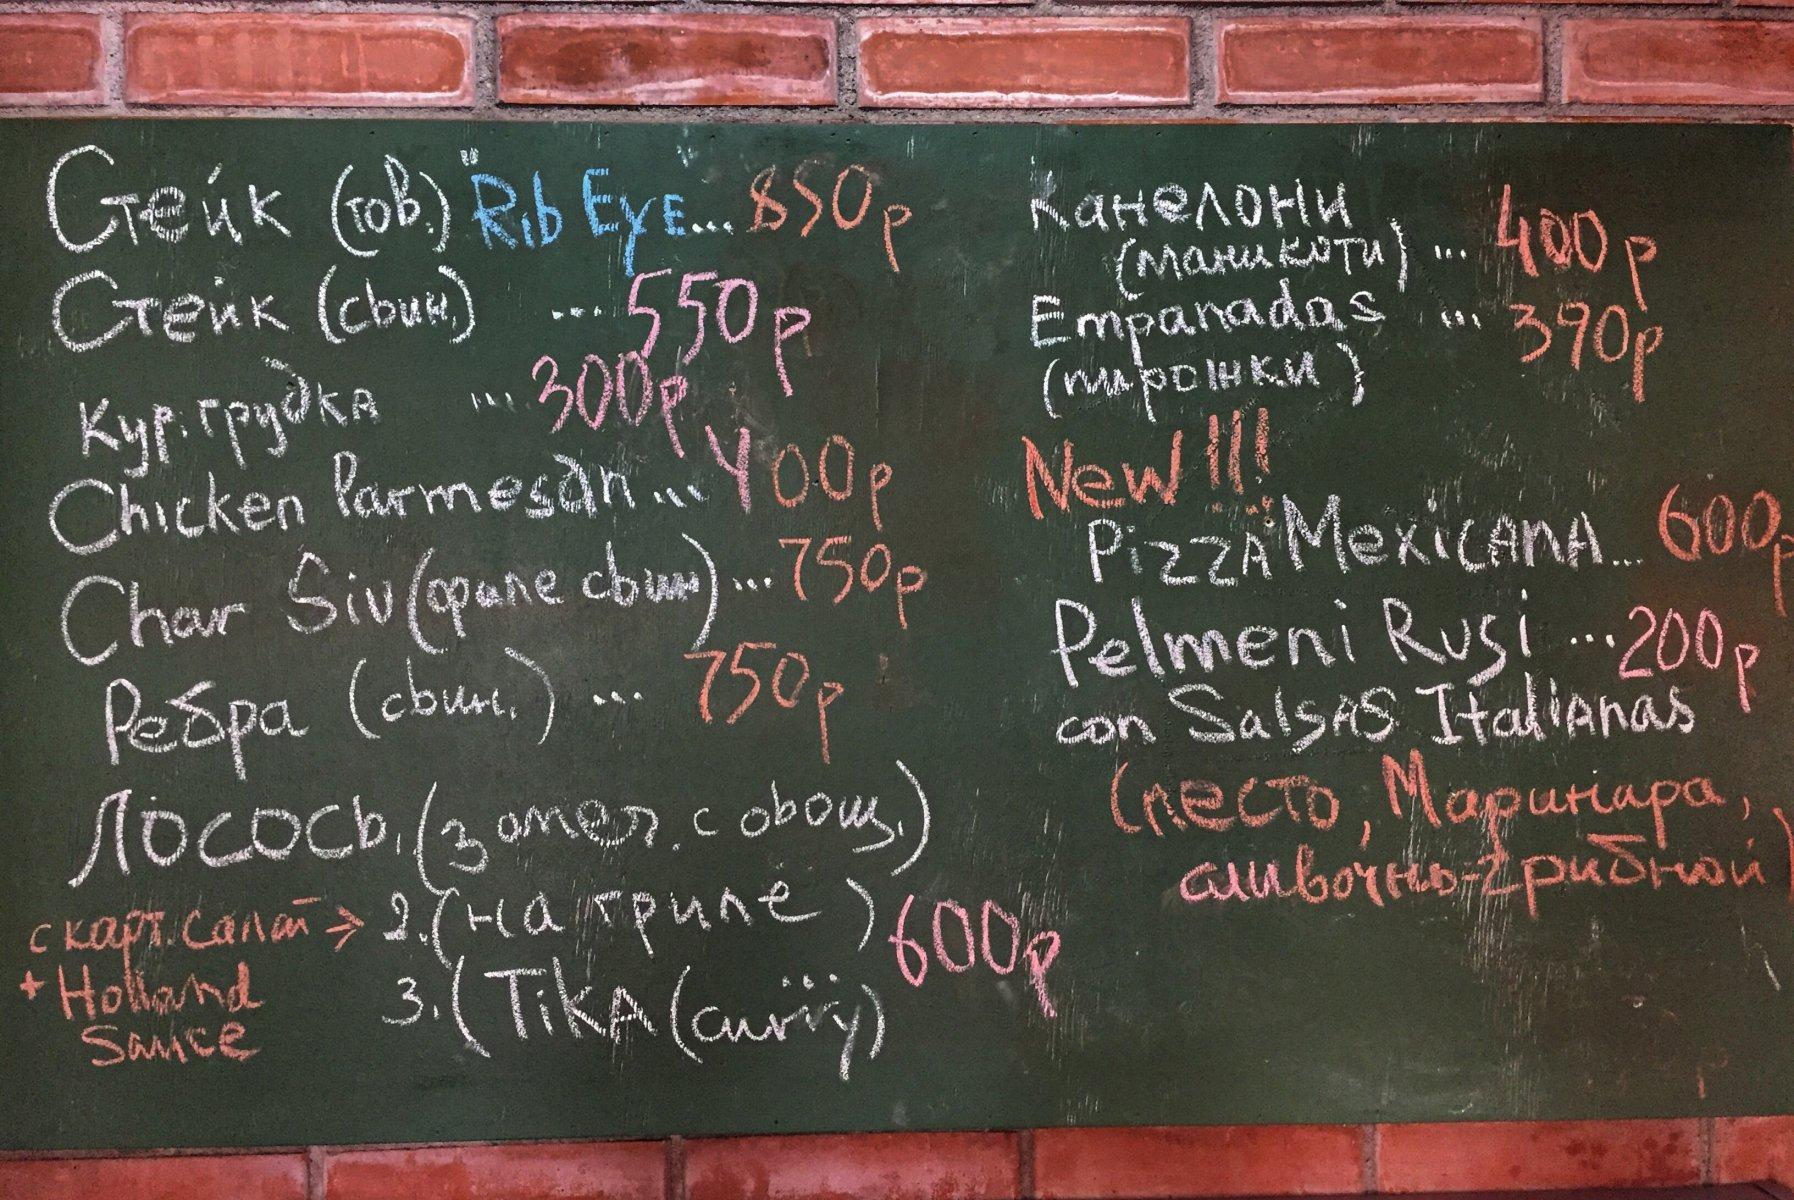 Стейк (гов.) "Rib Eye"... 850р
Стейк (свин.) ... 550р
Кур. грудка ... 300р
Chicken Parmesan ... 400р
Char Siu (филе свин) ... 750р
Ребра (свин.) ... 750р
Лосось 1. (з омлет. с овощ.)
с карт. салат → 2. (на гриле) 600р
+ Holland 3. (Tika (curry)
Sauce
Канелони
(маникоти) ... 400р
Empanadas ... 390р
(пирошки)
New!!!
Pizza "Mexicana... 600р
Pelmeni Rusi ... 200р
con Salsas Italianas
(песто, Маринара,
сливочнь-грибной)